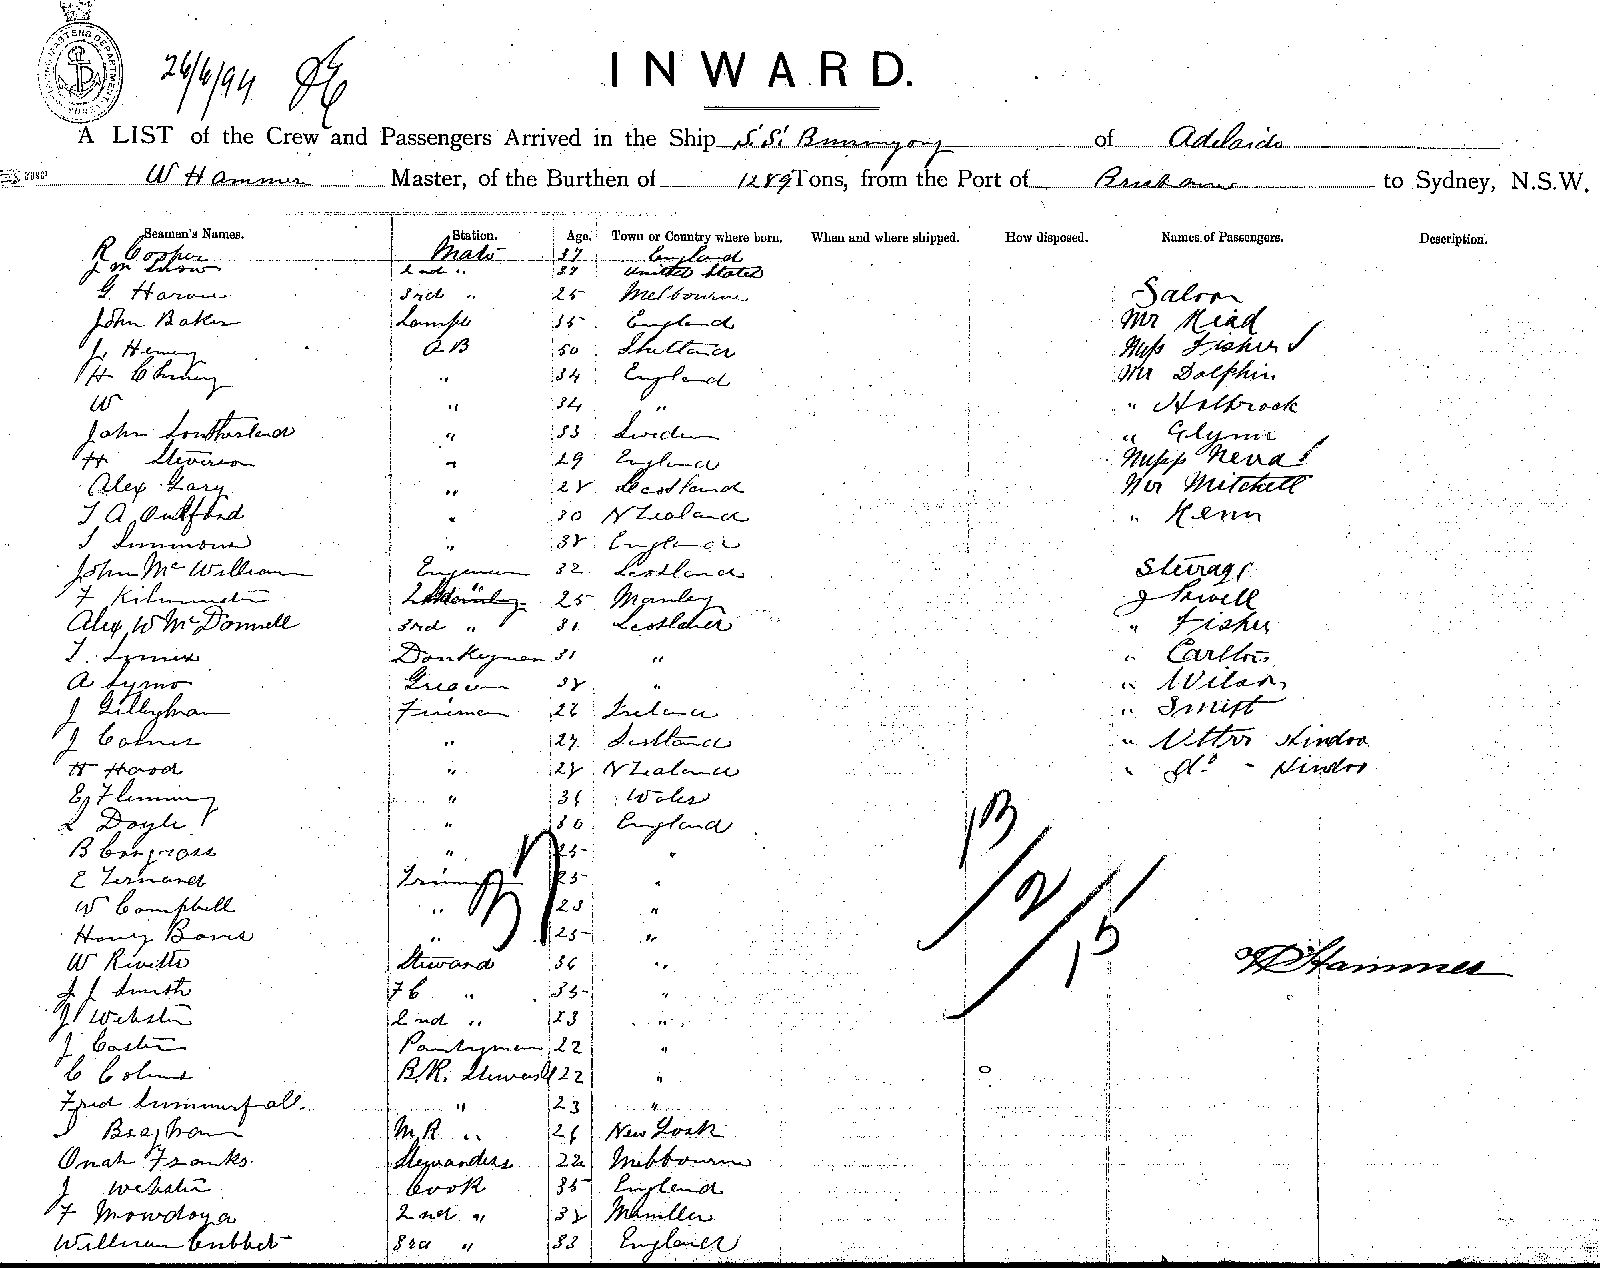 26/6/94
INWARD.
A LIST of the Crew and Passengers Arrived in the Ship S.S. Buninyong of Adelaide
W Hammer Master, of the Burthen of 1289 Tons, from the Port of Brisbane to Sydney, N.S.W.
Seamen's Names. Station. Age. Town or Country where born. When and where shipped. How disposed. Names of Passengers. Description.
R Cooper Mate 37 England
J M Snow 2nd " 37 United States
G. 3rd " 25 Melbourne Saloon
John Baker Lamps 35 England Mr Read
J. Henry AB 50 Miss Fisher
H " 34 England Mr Dolphin
W " 34 " " Holbrook
John Southerland " 33 Sweden " Glynn
H Steverson " 29 England
Alex Gary " 28 Scotland Mr Mitchell
T A Oulfard " 30 N Zealand " Kenn
T Simmons " 38 England
John McWilliam 32 Scotland Steerage
F 2 " 25 Manley J Sewell
Alex W McDonnell 3rd " 31 Scotland " Fisher
T. Donkeyman 31 " " Carlton
A Syms 38 " " Wilson
J Fireman 26 Ireland
J " 27 Scotland " Hindoo
H Hood " 28 N Zealand " do - Hindoo
E Fleming " 36 Wales
L Doyle " 30 England
B " 25 "
E Fernand 25 "
W Campbell " 23 "
Harry " 25 "
W Rivetts Steward 36 "
J J Smith FC " 35 "
J Webster 2nd " 23 "
J Pantryman 22 "
C B.R. Steward 22 "
Fred Summerfall " 23 "
M.R " 26 New York
Onah Franks Stewardess 22 Melbourne
J Webster Cook 35 England
F 2nd " 38 Manilla
William 3rd " 33 England
13/2/15
W Hammer